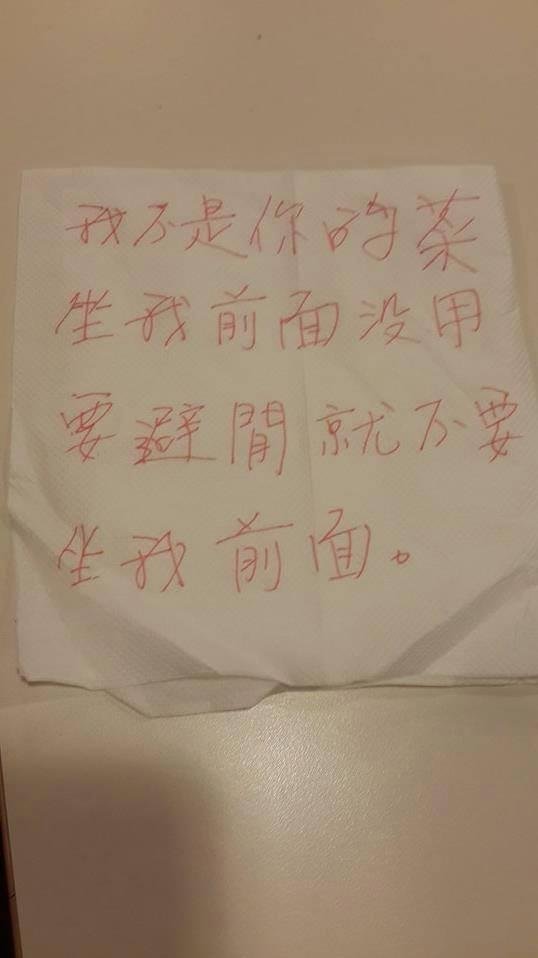 我不是你的菜
坐我前面没用
要避開就不要
坐我前面。